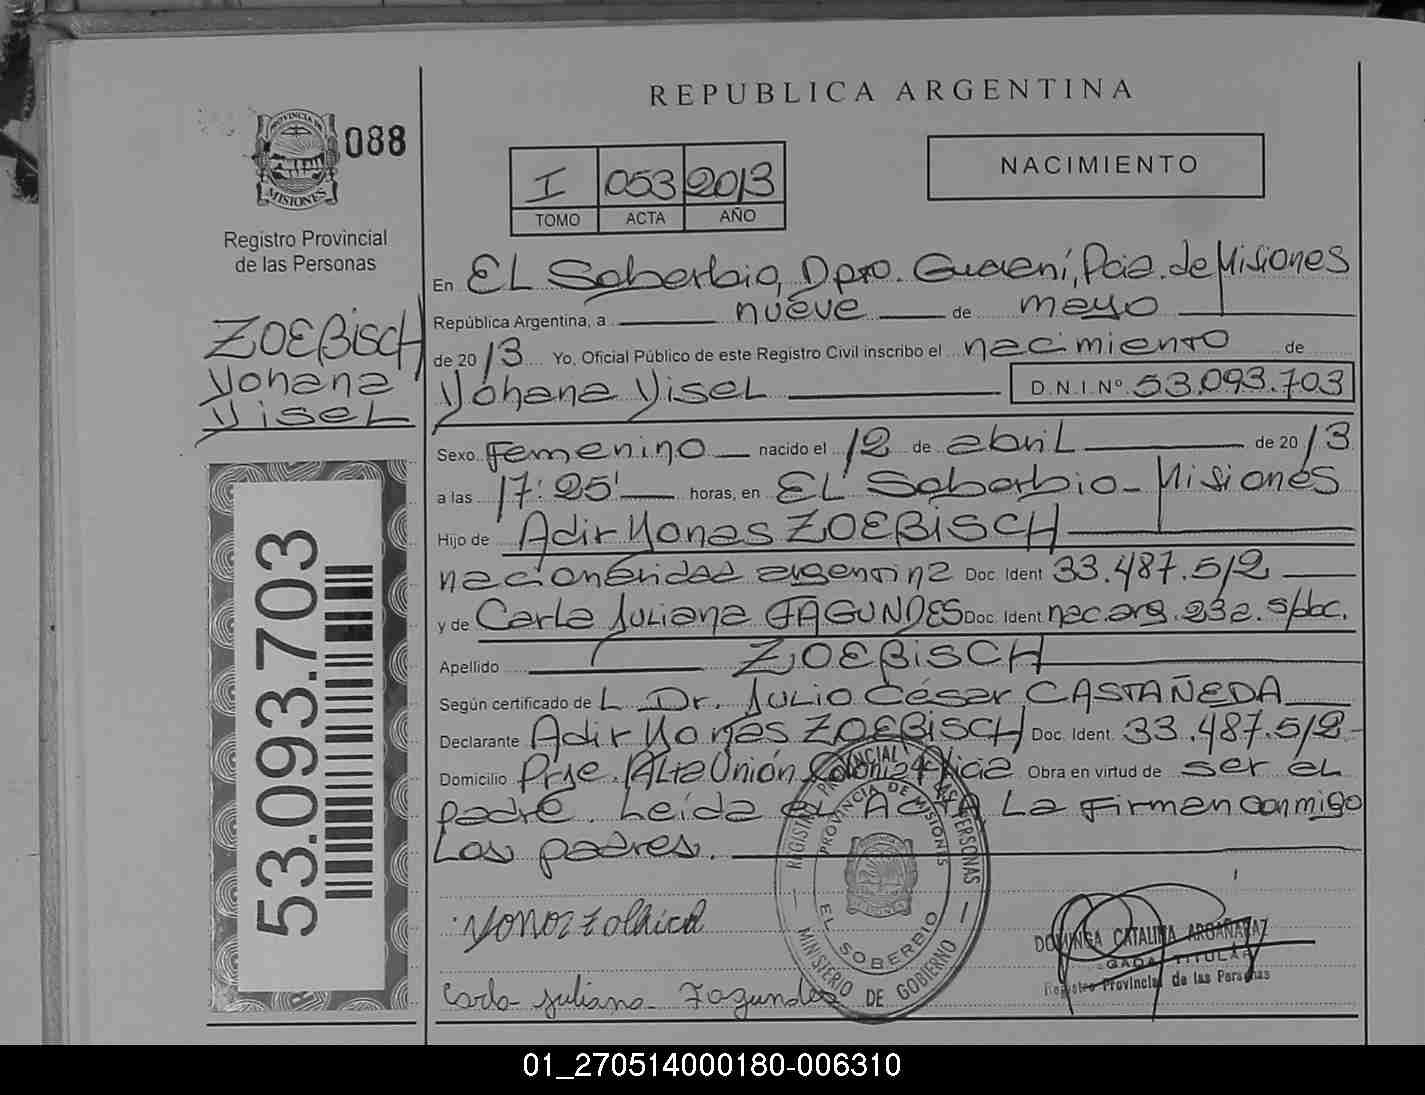 REPUBLICA ARGENTINA
PROVINCIA DE
MISIONES
088
Registro Provincial
de las Personas
I 053 2013
TOMO ACTA AÑO
NACIMIENTO
ZOEBISCH
Yohana
Yisel
53.093.703
En EL Soberbio, Dpto. Guaraní, Pcia. de Misiones
República Argentina, a nueve de mayo
de 2013 Yo, Oficial Público de este Registro Civil inscribo el nacimiento de
Yohana Yisel D.N.I.Nº 53.093.703
Sexo Femenino nacido el 12 de abril de 2013
a las 17:25' horas, en EL Soberbio - Misiones
Hijo de Adir Yonas ZOEBISCH
nacionalidad argentina Doc. Ident 33.487.512
y de Carla Juliana FAGUNDES Doc. Ident nac.arg. 23a. s/doc.
Apellido ZOEBISCH
Según certificado de L Dr. Julio César CASTAÑEDA
Declarante Adir Yonas ZOEBISCH Doc. Ident. 33.487.512
Domicilio Prje. Alta Unión, Colonia Alicia Obra en virtud de ser el
padre. Leída el Acta La Firman conmigo
Los padres.
REGISTRO PROVINCIAL DE LAS PERSONAS
PROVINCIA DE MISIONES
EL SOBERBIO
MINISTERIO DE GOBIERNO
Carla Juliana Fagundes
DOMINGA CATALINA ARGAÑARAZ
TITULAR
Registro Provincial de las Personas
01_270514000180-006310